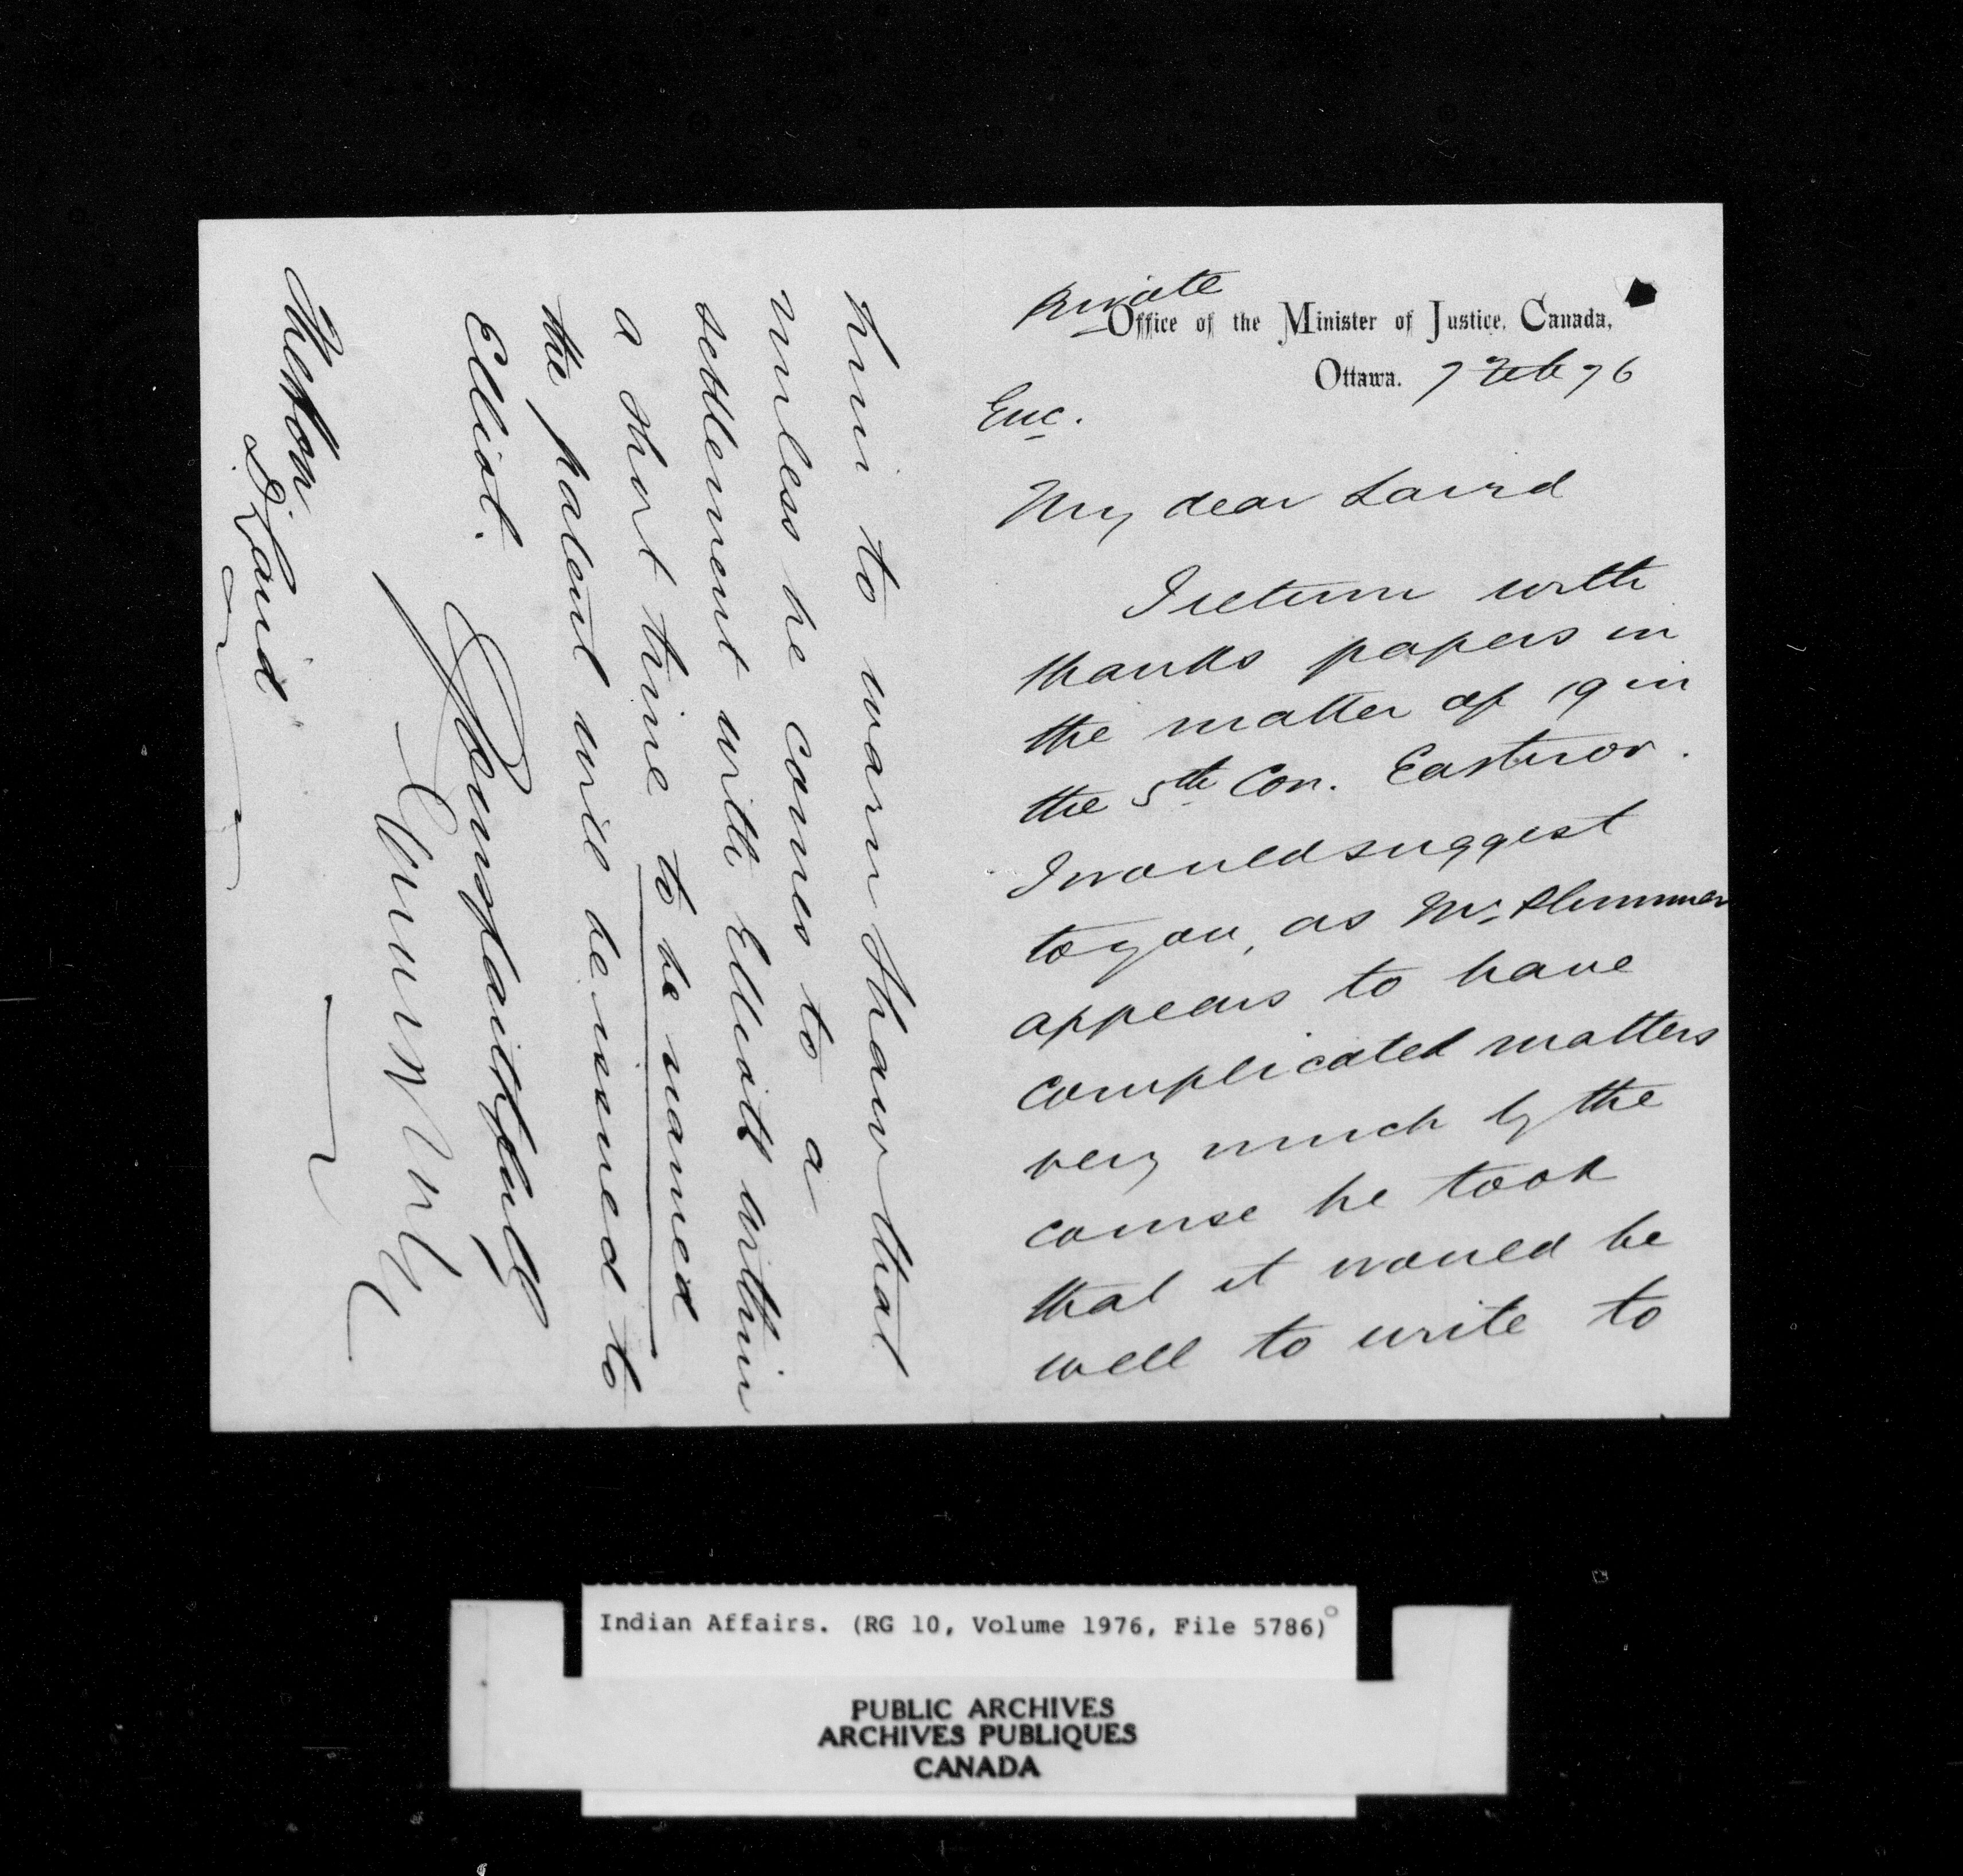 Private
Office of the Minister of Justice, Canada,
Ottawa. 7 Feb 76
Enc.
My dear Laird
I return with
thanks papers in
the matter of 19 in
the 5th Con. Eastnor.
I would suggest
to you, as Mr. Plummer
appears to have
complicated matters
very much by the
course he took
that it would be
well to write to
him to warn Shaw that
unless he comes to a
settlement with Elliott within
a short time to be named
the patent will be issued to
Elliot.
Yours faithfully
Hon
D. Laird
Indian Affairs. (RG 10, Volume 1976, File 5786)
PUBLIC ARCHIVES
ARCHIVES PUBLIQUES
CANADA